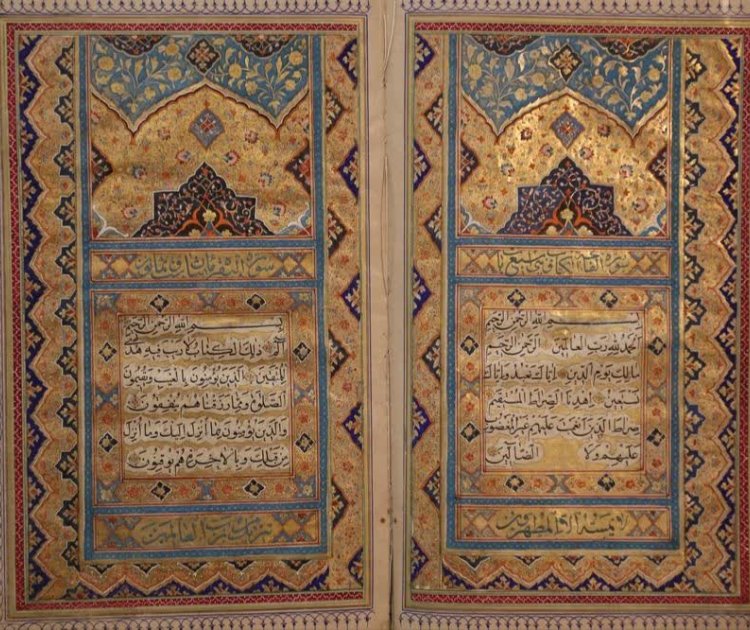 سورة الفاتحة الكتاب وهي سبع آيات
بِسْمِ اللهِ الرَّحْمٰنِ الرَّحِيمِ
اَلْحَمْدُ لِلّٰهِ رَبِّ الْعَالَمِينَ الرَّحْمٰنِ الرَّحِيمِ
مَالِكِ يَوْمِ الدِّينِ اِيَّاكَ نَعْبُدُ وَاِيَّاكَ
نَسْتَعِينُ اِهْدِنَا الصِّرَاطَ الْمُسْتَقِيمَ
صِرَاطَ الَّذِينَ اَنْعَمْتَ عَلَيْهِمْ غَيْرِ الْمَغْضُوبِ
عَلَيْهِمْ وَلَا الضَّالِّينَ
لا يمسه الا المطهرون
سورة البقرة مائتان و
بِسْمِ اللهِ الرَّحْمٰنِ الرَّحِيمِ
الٓمٓ ذٰلِكَ الْكِتَابُ لَا رَيْبَ فِيهِ هُدًى
لِلْمُتَّقِينَ اَلَّذِينَ يُؤْمِنُونَ بِالْغَيْبِ وَيُقِيمُونَ
الصَّلٰوةَ وَمِمَّا رَزَقْنَاهُمْ يُنْفِقُونَ
وَالَّذِينَ يُؤْمِنُونَ بِمَا اُنْزِلَ اِلَيْكَ وَمَا اُنْزِلَ
مِنْ قَبْلِكَ وَبِالْاٰخِرَةِ هُمْ يُوقِنُونَ
تنزيل من رب العالمين